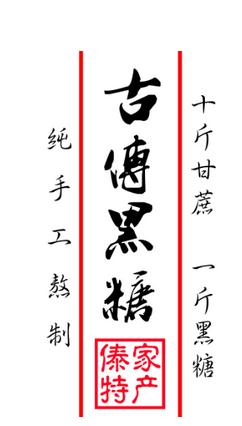 十斤甘蔗 一斤黑糖
古傳黑糖
家产
傣特
纯手工熬制